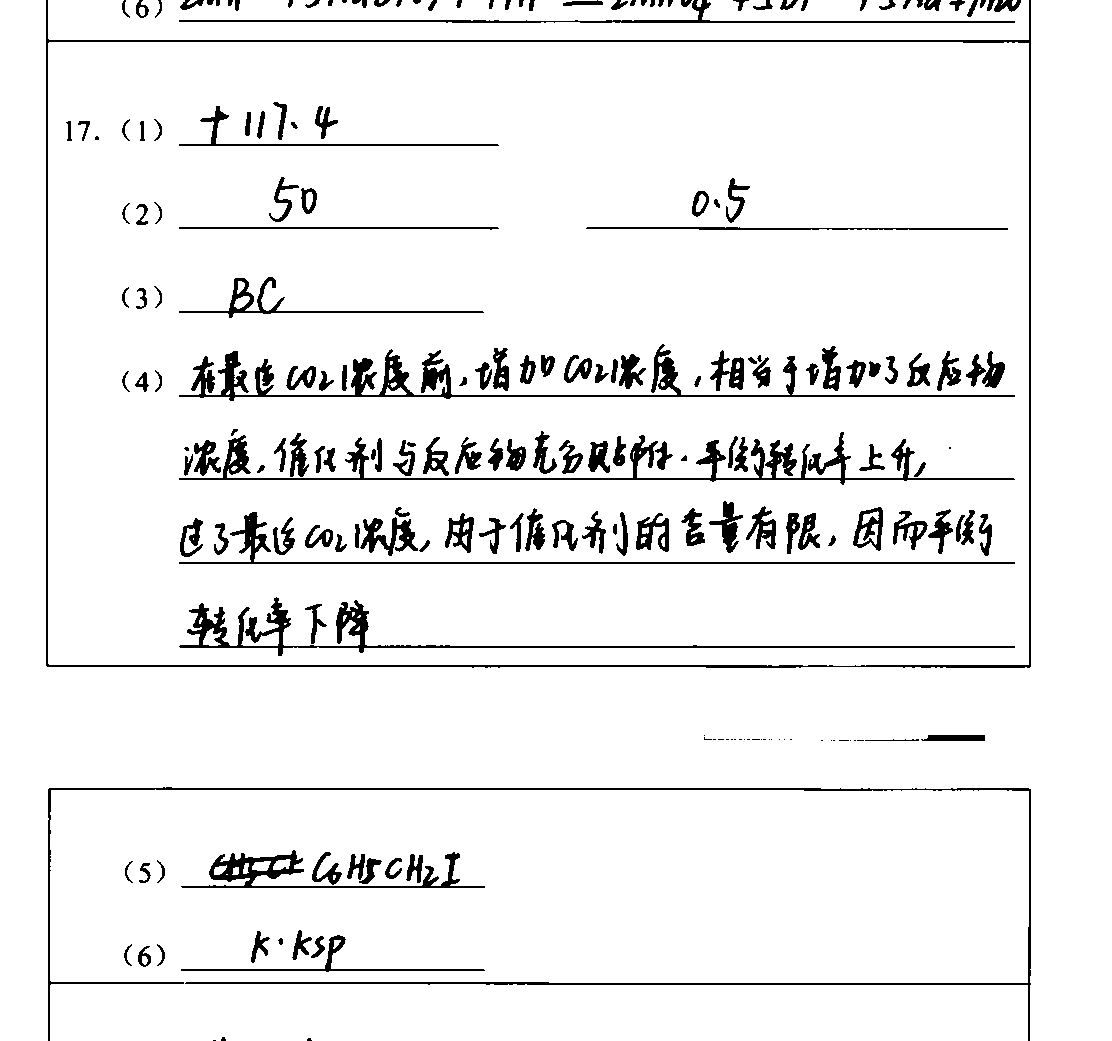 (6)
17. (1) +117.4
(2) 50 0.5
(3) BC
(4) 在最适CO2浓度前,增加CO2浓度,相当于增加了反应物
浓度,催化剂与反应物充分吸附.平衡转化率上升,
过了最适CO2浓度,由于催化剂的含量有限,因而平衡
转化率下降
(5) C6H5CH2I
(6) K·Ksp